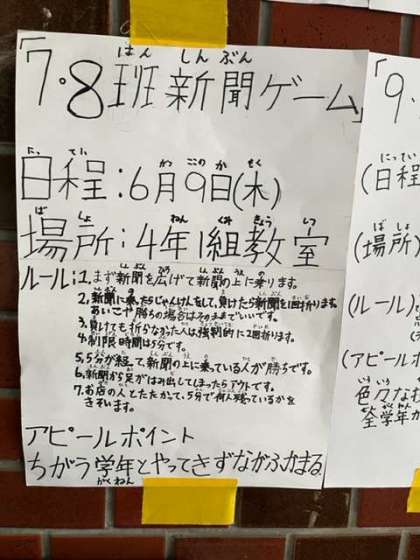 「7・8班新聞ゲーム」
はん しんぶん
日程:6月9日(木)
にってい がつ ここのか もく
場所:4年1組教室
ばしょ ねん くみ きょうしつ
ルール:1.まず新聞を広げて新聞の上に乗ります。
2.新聞に乗ったらじゃんけんをして、負けたら新聞を1回折ります。
あいこや勝ちの場合はそのままでいいです。
3.負けても折らなかった人は強制的に2回折ります。
4.制限時間は5分です。
5.5分が経って新聞の上に乗っている人が勝ちです。
6.新聞から足がはみ出してしまったらアウトです。
7.お店の人とたたかって、5分で何人残っているかを
きそいます。
アピールポイント
ちがう学年とやってきずながふかまる
がくねん
「9・
にってい
(日程)
ばしょ
(場所)
(ルール)
(アピールポ
いろいろ
色々なむ
ぜんがくねん
全学年か